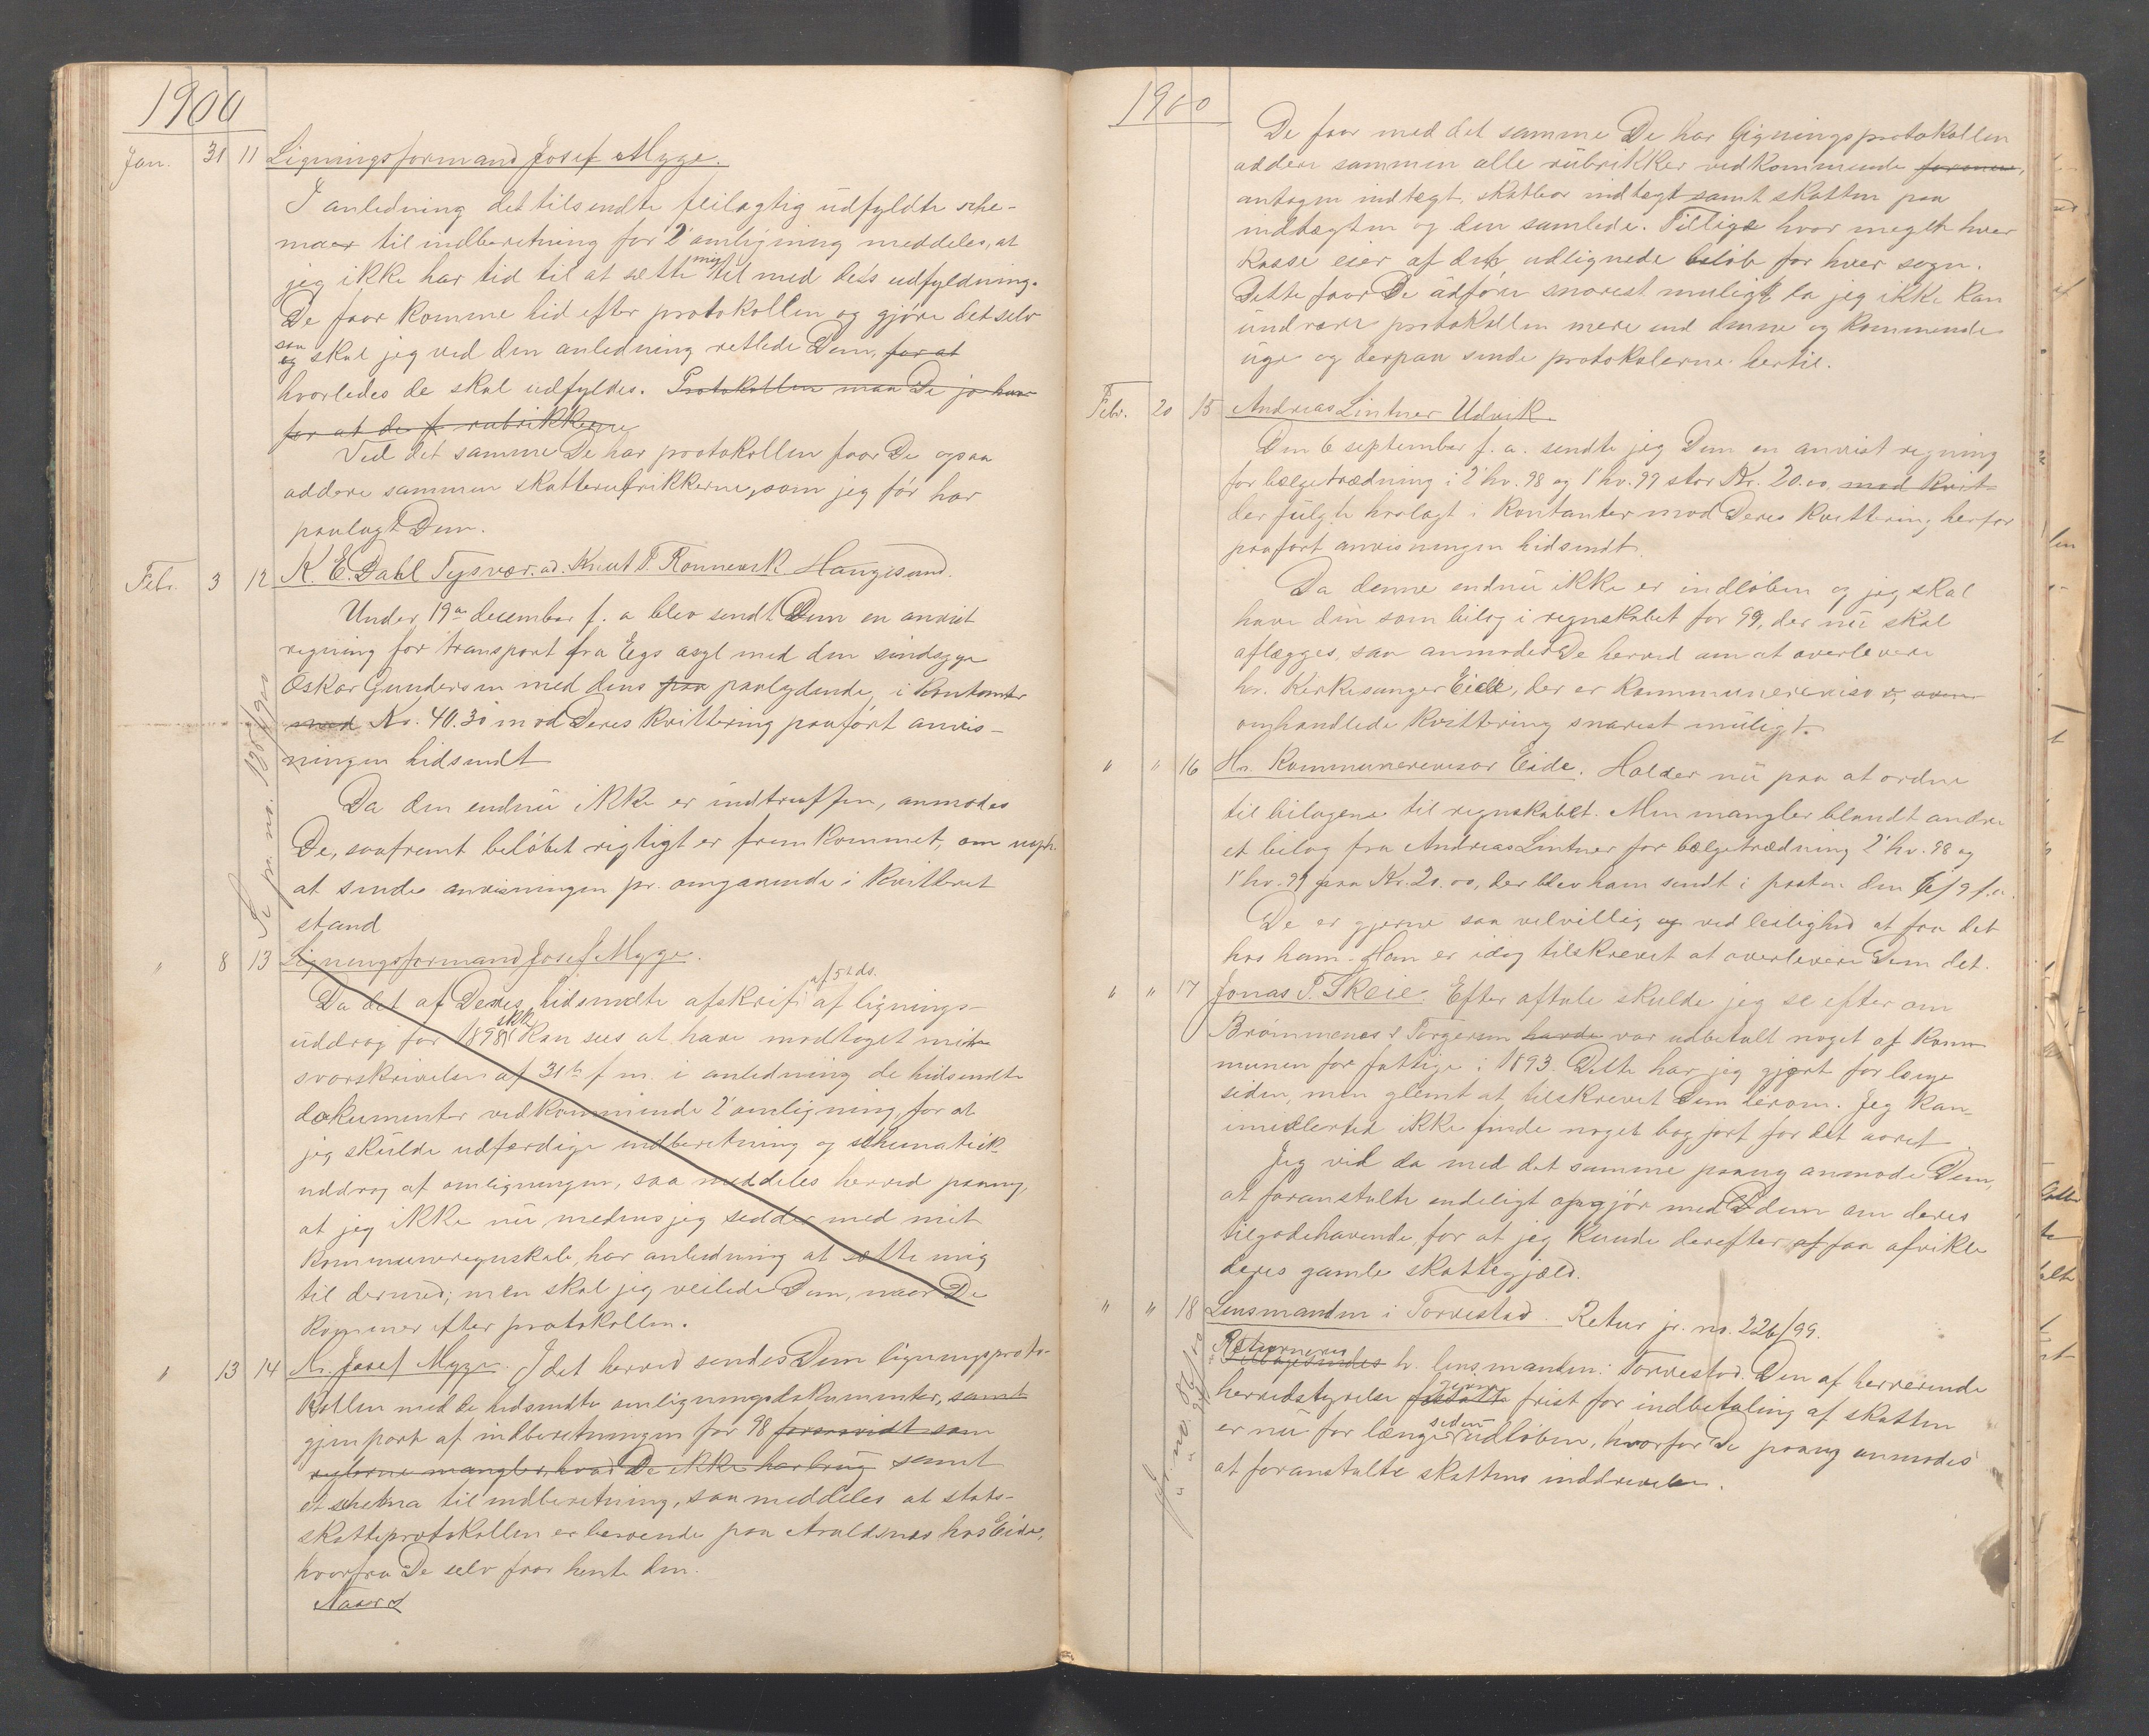 1900
Jan. 31 11 Ligningsformand Josef Myge.
I anledning det tilsendte feilagtig udfyldte sche-
maer til indberetning for 2' omligning meddeles, at
jeg ikke har tid til at sætte mig til med dets udfyldning.
De faar komme hid efter protokollen og gjøre det selv
saa skal jeg ved den anledning retlede Dem, for at
hvorledes de skal udfyldes. Protokollen maa De jo have
for at de f. rubrikkerne
Ved det samme De har protokollen faar De ogsaa
addere sammen skatterubrikkerne, som jeg før har
paalagt Dem.
Febr. 3 12 K. E. Dahl Tysvær. ad. Knut P. Rønnevik Haugesund.
Under 19de december f. a blev sendt Dem en anvist
regning for transport fra Eegs asyl med den sindsyge
Oskar Gundersen med dens paa paalydende, i kontanter
med Kr. 40.30 mod Deres kvittering paaført anvis-
ningen hidsendt
Da den endnu ikke er indtruffen, anmodes
De, saafremt beløbet rigtigt er fremkommet, om
at sende anvisningen pr. omgaaende i kvitteret
stand
Se jr. no. 135/1900
" 8 13 Ligningsformand Josef Myge.
Da det af Deres hidsendte afskrift af 5te ds. af lignings-
uddrag for 1898 skk kan sees at have modtaget mit
svarskrivelse af 31te f. m. i anledning de hidsendte
dokumenter vedkommende 2' omligning, for at
jeg skulde udfærdige indberetning og schematisk
uddrag af omligningen, saa meddeles herved paany,
at jeg ikke nu medens jeg sidder med mit
kommuneregnskab, har anledning at sætte mig
til dermed; men skal jeg veilede Dem, naar De
kommer efter protokollen.
" 13 14 Hr. Josef Myge. Idet herved sendes Dem ligningsproto-
kollen med de hidsendte omligningsdokumenter, samt
gjenpart af indberetningen for 98 forsaavidt som
reglerne mangler, hvad De ikke har brug samt
et schema til indberetning, saa meddeles at stats-
skatteprotokollen er beroende paa Avaldsnes hos Eide,
hvorfra De selv faar hente den.
Naar d
1900
De faar med det samme De har ligningsprotokollen
addere sammen alle rubrikker vedkommende formue,
antagen indtægt, skatbar indtægt samt skatten paa
indtægten og den samlede. Tillige hvor meget hver
kasse eier af det udlignede beløb for hver sogn.
Dette faar De udføre snarest muligt da jeg ikke kan
undvære protokollen mere end denne og kommende
uge og derpaa sende protokolerne hertil.
Febr. 20 15 Andreas Lintner Udvik.
Den 6 september f. a. sendte jeg Dem en anvist regning
for bælgetrædning i 2' hv. 98 og 1' hv. 99 stor Kr. 20.00. mod kvit-
der fulgte hoslagt i kontanter mod Deres kvittering herfor
paaført anvisningen hidsendt.
Da denne endnu ikke er indløben og jeg skal
have den som bilag i regnskabet for 99, der nu skal
aflægges, saa anmodes De herved om at overlevere
hr. Kirkesanger Eide, der er kommunerevisor, over
omhandlede kvittering snarest muligt.
" " 16 Hr. Kommunerevisor Eide. Holder nu paa at ordne
til bilagene til regnskabet. Men mangler blandt andre
et bilag fra Andreas Lintner for bælgetrædning 2' hv. 98 og
1' hv. 99 paa Kr. 20.00, der blev ham sendt i posten den 6/9 f.a.
De er gjerne saa velvillig og ved leilighed at faa det
hos ham. Han er idag tilskrevet at overlevere Dem det.
" " 17 Jonas P. Skeie. Efter aftale skulde jeg se efter om
Brømmenes & Torgersen havde var udbetalt noget af kom-
munen for fattige i 1893. Dette har jeg gjort for længe
siden, men glemt at tilskrevet Dem derom. Jeg kan
imidlertid ikke finde noget bogført for det aaret.
Jeg vil da med det samme paany anmode Dem,
at foranstalte endeligt opgjør med dem om deres
tilgodehavende, for at jeg kunde derefter af faa afvikle
deres gamle skattegjæld.
" " 18 Lensmanden i Torvestad. Retur jr. no. 226/99.
Tilbagesendes Returneres hr. lensmanden i Torvestad. Den af herværende
herredstyrelse givne frist for indbetaling af skatten
er nu for længe siden udløben, hvorfor De paany anmodes
at foranstalte skattens inddrivelse.